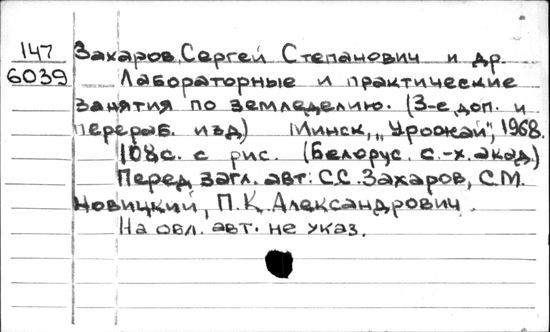 147
6039
Захаров, Сергей Степанович и др.
Лабораторные и практические
занятия по земледелию. (3-е, доп. и
перераб. изд) Минск, „Урожай", 1968.
108с. с рис. (Белорус. с.-х. акад.)
Перед загл. авт: С.С. Захаров, С.М.
Новицкий, П.К. Александрович.
На обл. авт. не указ.